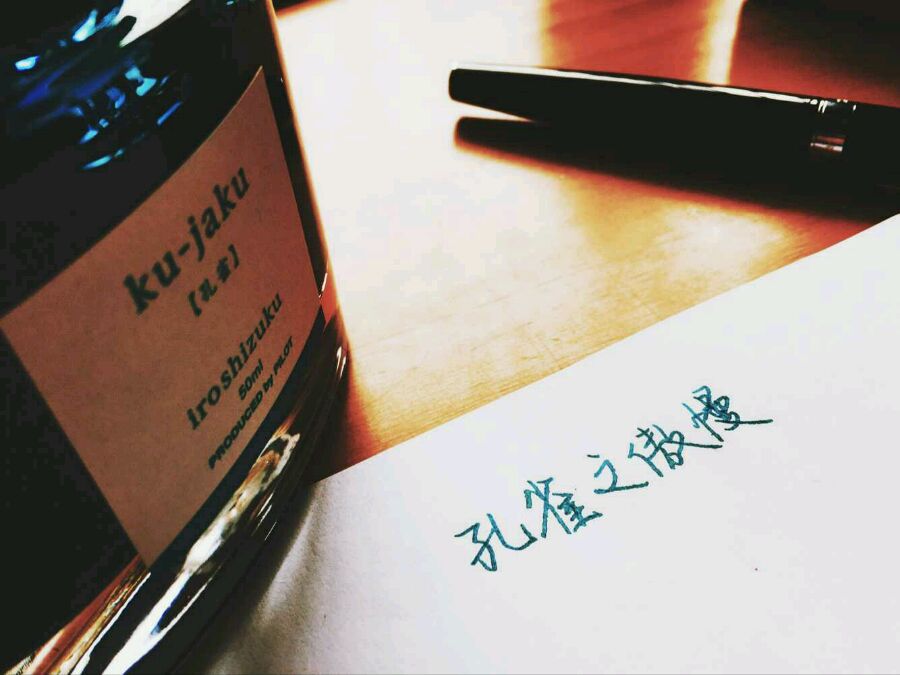 ku-jaku
【孔雀】
iroshizuku
50ml
PRODUCED by PILOT
孔雀之傲慢